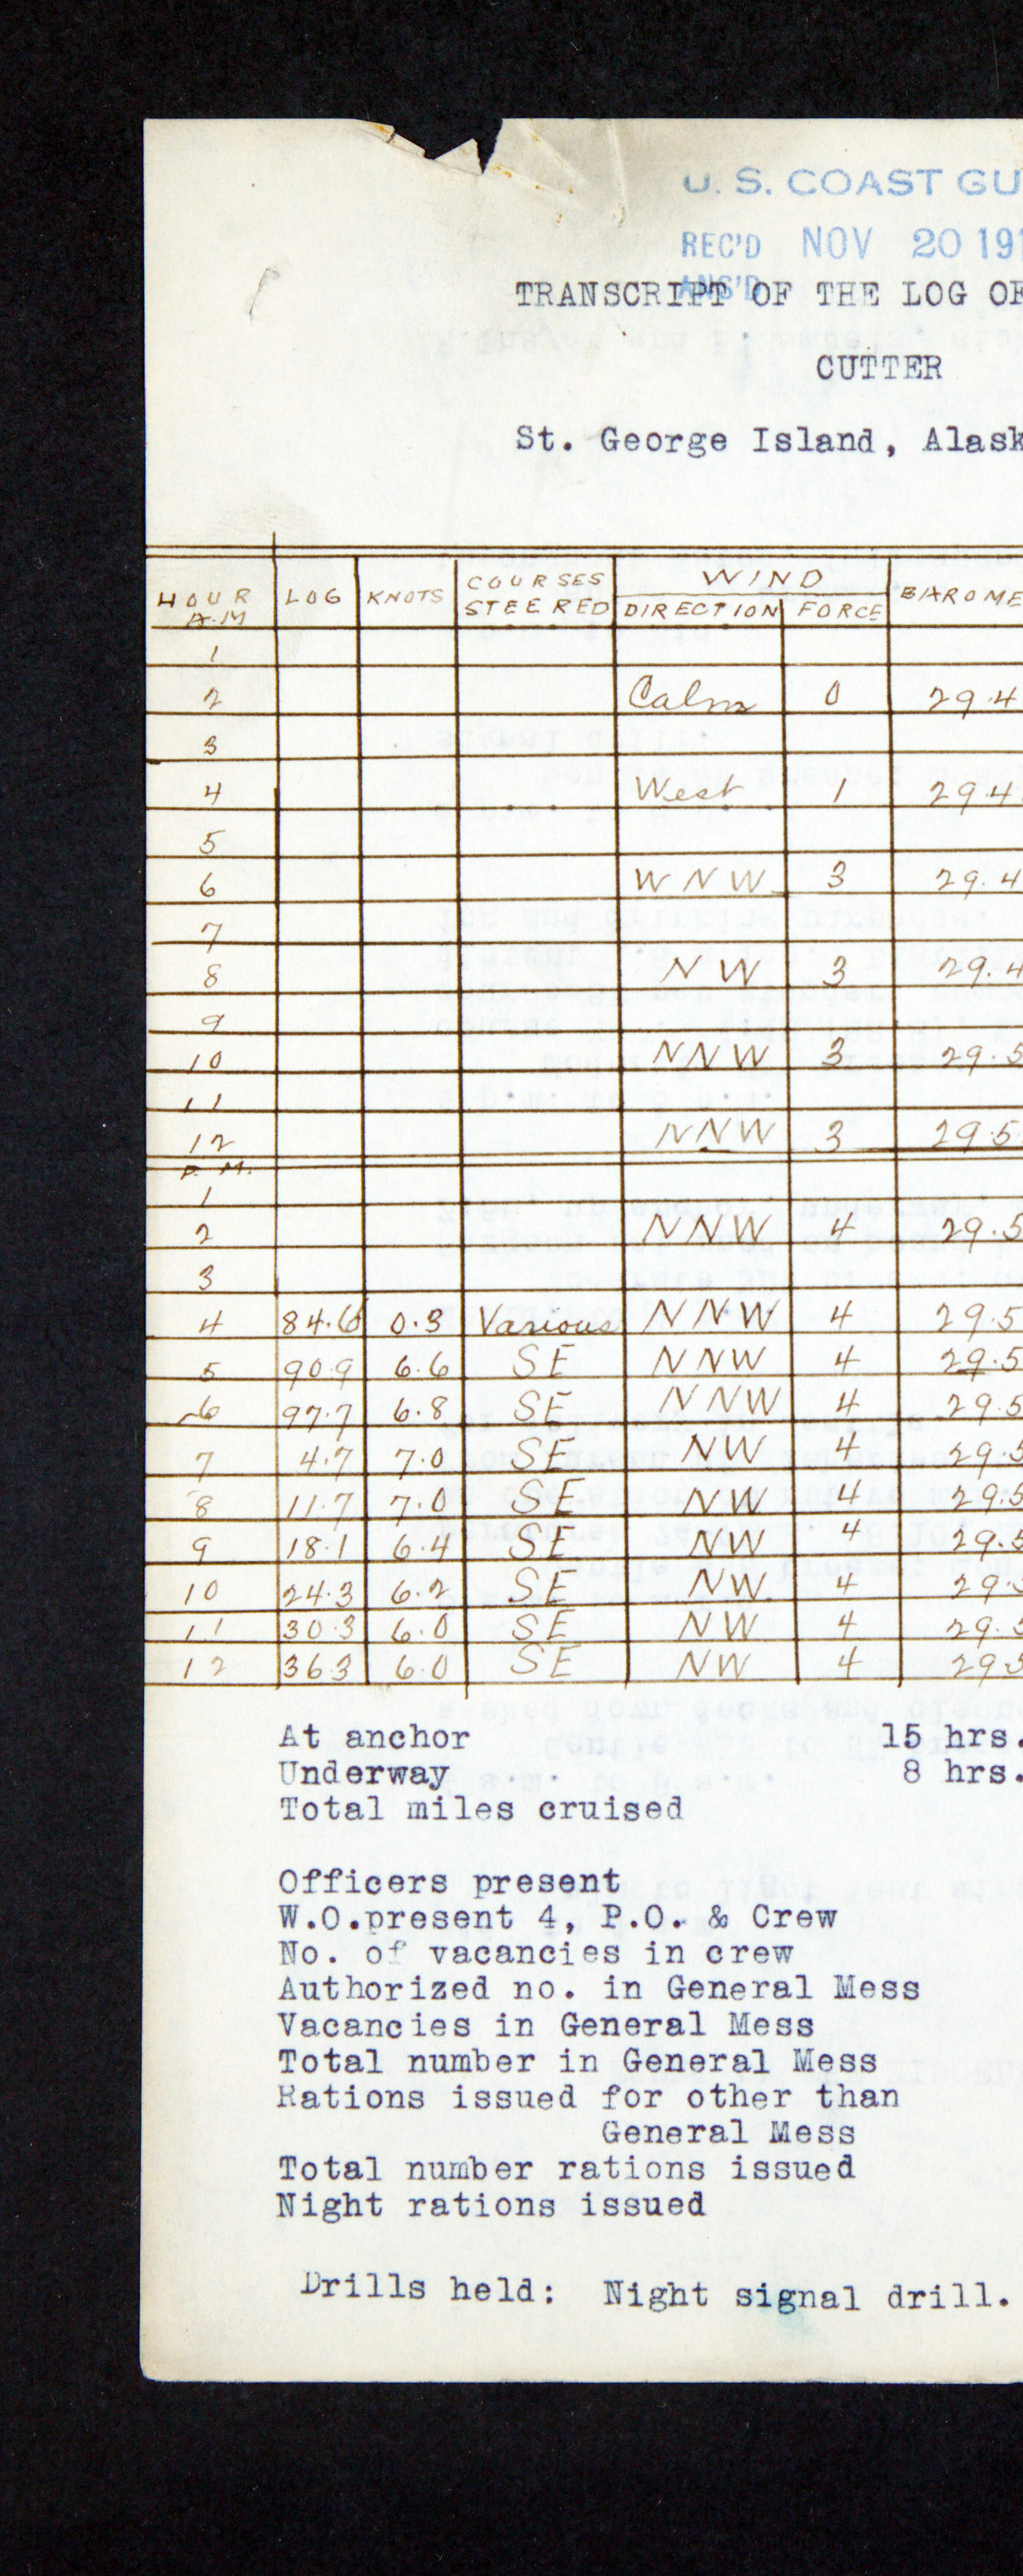 U. S. COAST GU
REC'D NOV 20 191
ANS'D
TRANSCRIPT OF THE LOG OF
CUTTER
St. George Island, Alask
HOUR A.M LOG KNOTS COURSES STEERED WIND DIRECTION FORCE BAROME
1
2 Calm 0 29.4
3
4 West 1 29.4
5
6 WNW 3 29.4
7
8 NW 3 29.4
9
10 NNW 3 29.5
11
12 NNW 3 29.5
P.M.
1
2 NNW 4 29.5
3
4 84.6 0.3 Various NNW 4 29.5
5 90.9 6.6 SE NNW 4 29.5
6 97.7 6.8 SE NNW 4 29.5
7 4.7 7.0 SE NW 4 29.5
8 11.7 7.0 SE NW 4 29.5
9 18.1 6.4 SE NW 4 29.5
10 24.3 6.2 SE NW 4 29.5
11 30.3 6.0 SE NW 4 29.5
12 36.3 6.0 SE NW 4 29.5
At anchor 15 hrs.
Underway 8 hrs.
Total miles cruised
Officers present
W.O.present 4, P.O. & Crew
No. of vacancies in crew
Authorized no. in General Mess
Vacancies in General Mess
Total number in General Mess
Rations issued for other than
General Mess
Total number rations issued
Night rations issued
Drills held: Night signal drill.